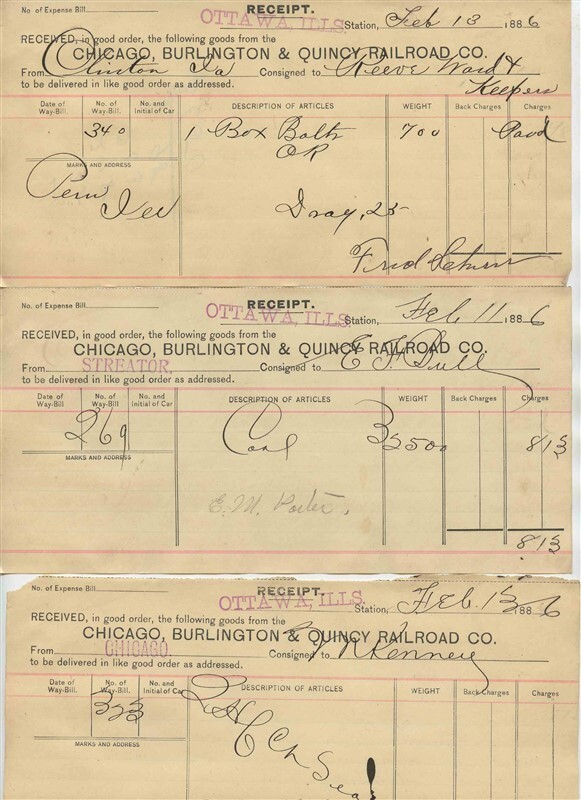 No. of Expense Bill
RECEIPT.
OTTAWA, ILLS. Station, Feb 13 1886
RECEIVED, in good order, the following goods from the
CHICAGO, BURLINGTON & QUINCY RAILROAD CO.
From Clinton Ia Consigned to Reeve Ward &
Keepers
to be delivered in like good order as addressed.
Date of Way-Bill. No. of Way-Bill. No. and Initial of Car DESCRIPTION OF ARTICLES WEIGHT Back Charges Charges
340 1 Box Bolts 700 Paid
OR
MARKS AND ADDRESS
Peru
Ill Dray, 25
Fred
No. of Expense Bill
RECEIPT.
OTTAWA, ILLS. Station, Feb. 11 1886
RECEIVED, in good order, the following goods from the
CHICAGO, BURLINGTON & QUINCY RAILROAD CO.
From STREATOR. Consigned to E F Bull
to be delivered in like good order as addressed.
Date of Way-Bill. No. of Way-Bill. No. and Initial of Car DESCRIPTION OF ARTICLES WEIGHT Back Charges Charges
269 Coal 32500 813
MARKS AND ADDRESS
E. M. Porter.
813
No. of Expense Bill
RECEIPT.
OTTAWA, ILLS. Station, Feb. 13 1886
RECEIVED, in good order, the following goods from the
CHICAGO, BURLINGTON & QUINCY RAILROAD CO.
From CHICAGO. Consigned to Kenney
to be delivered in like good order as addressed.
Date of Way-Bill. No. of Way-Bill. No. and Initial of Car DESCRIPTION OF ARTICLES WEIGHT Back Charges Charges
323
MARKS AND ADDRESS